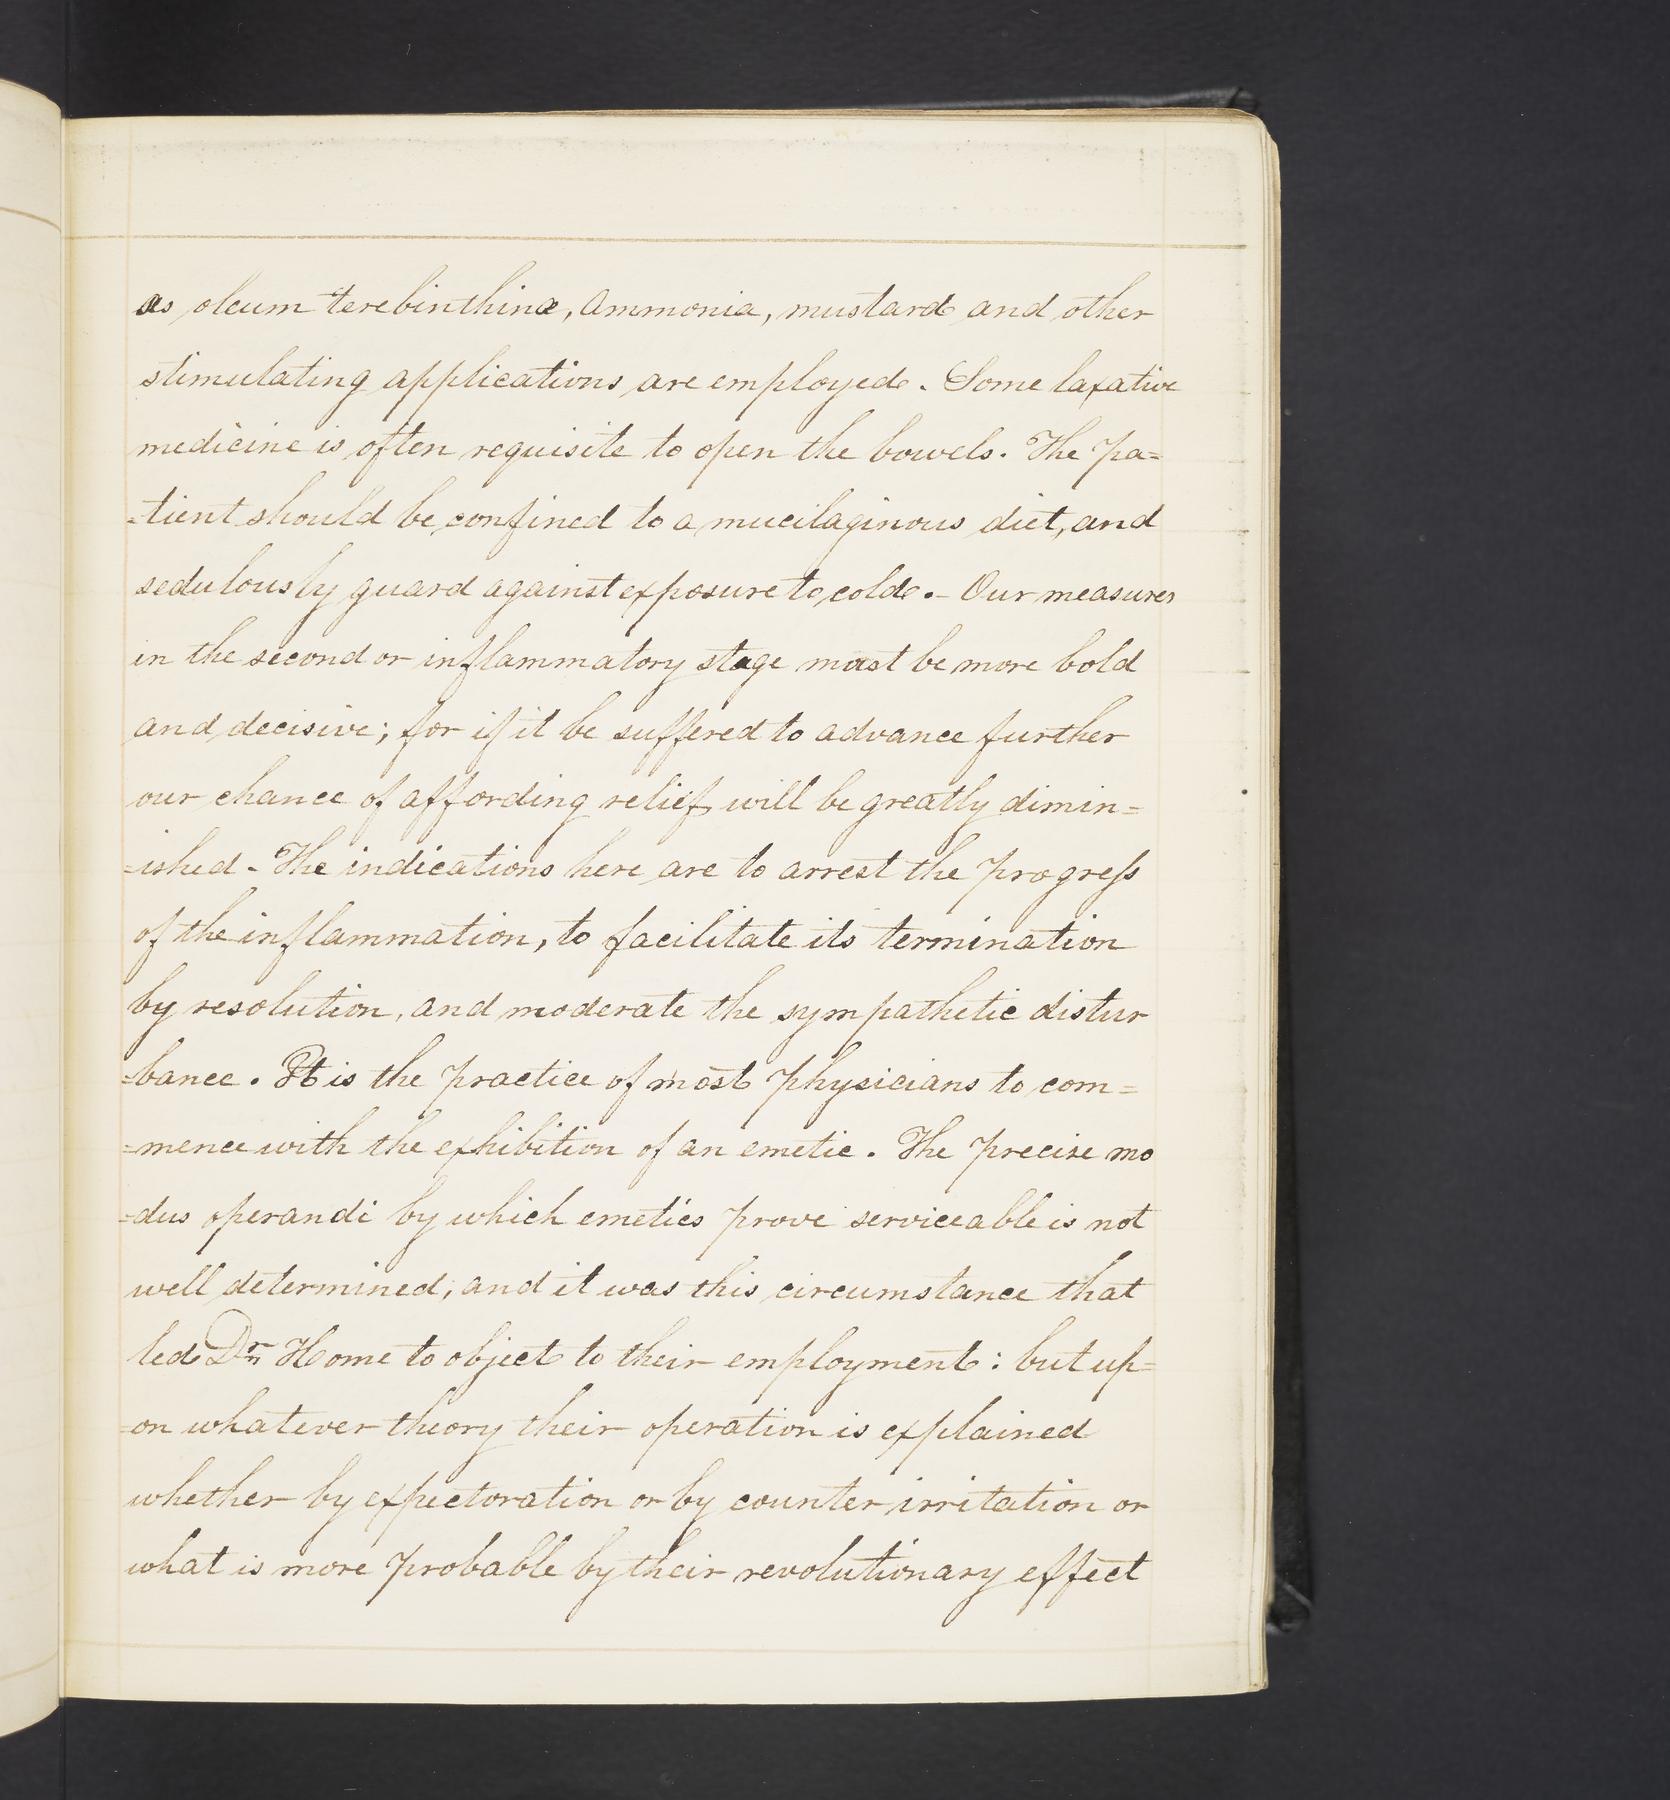 as oleum terebinthinæ, ammonia, mustard and other
stimulating applications are employed. Some laxative
medicine is often requisite to open the bowels. The pa=
=tient should be confined to a mucilaginous diet, and
sedulously guard against exposure to cold.– Our measures
in the second or inflammatory stage must be more bold
and decisive; for if it be suffered to advance further
our chance of affording relief will be greatly dimin=
=ished – The indications here are to arrest the progress
of the inflammation, to facilitate its termination
by resolution, and moderate the sympathetic distur
=bance. It is the practice of most physicians to com=
=mence with the exhibition of an emetic. The precise mo
=dus operandi by which emetics prove serviceable is not
well determined, and it was this circumstance that
led Dr Home to object to their employment: but up=
=on whatever theory their operation is explained
whether by expectoration or by counter irritation or
what is more probable by their revolutionary effect